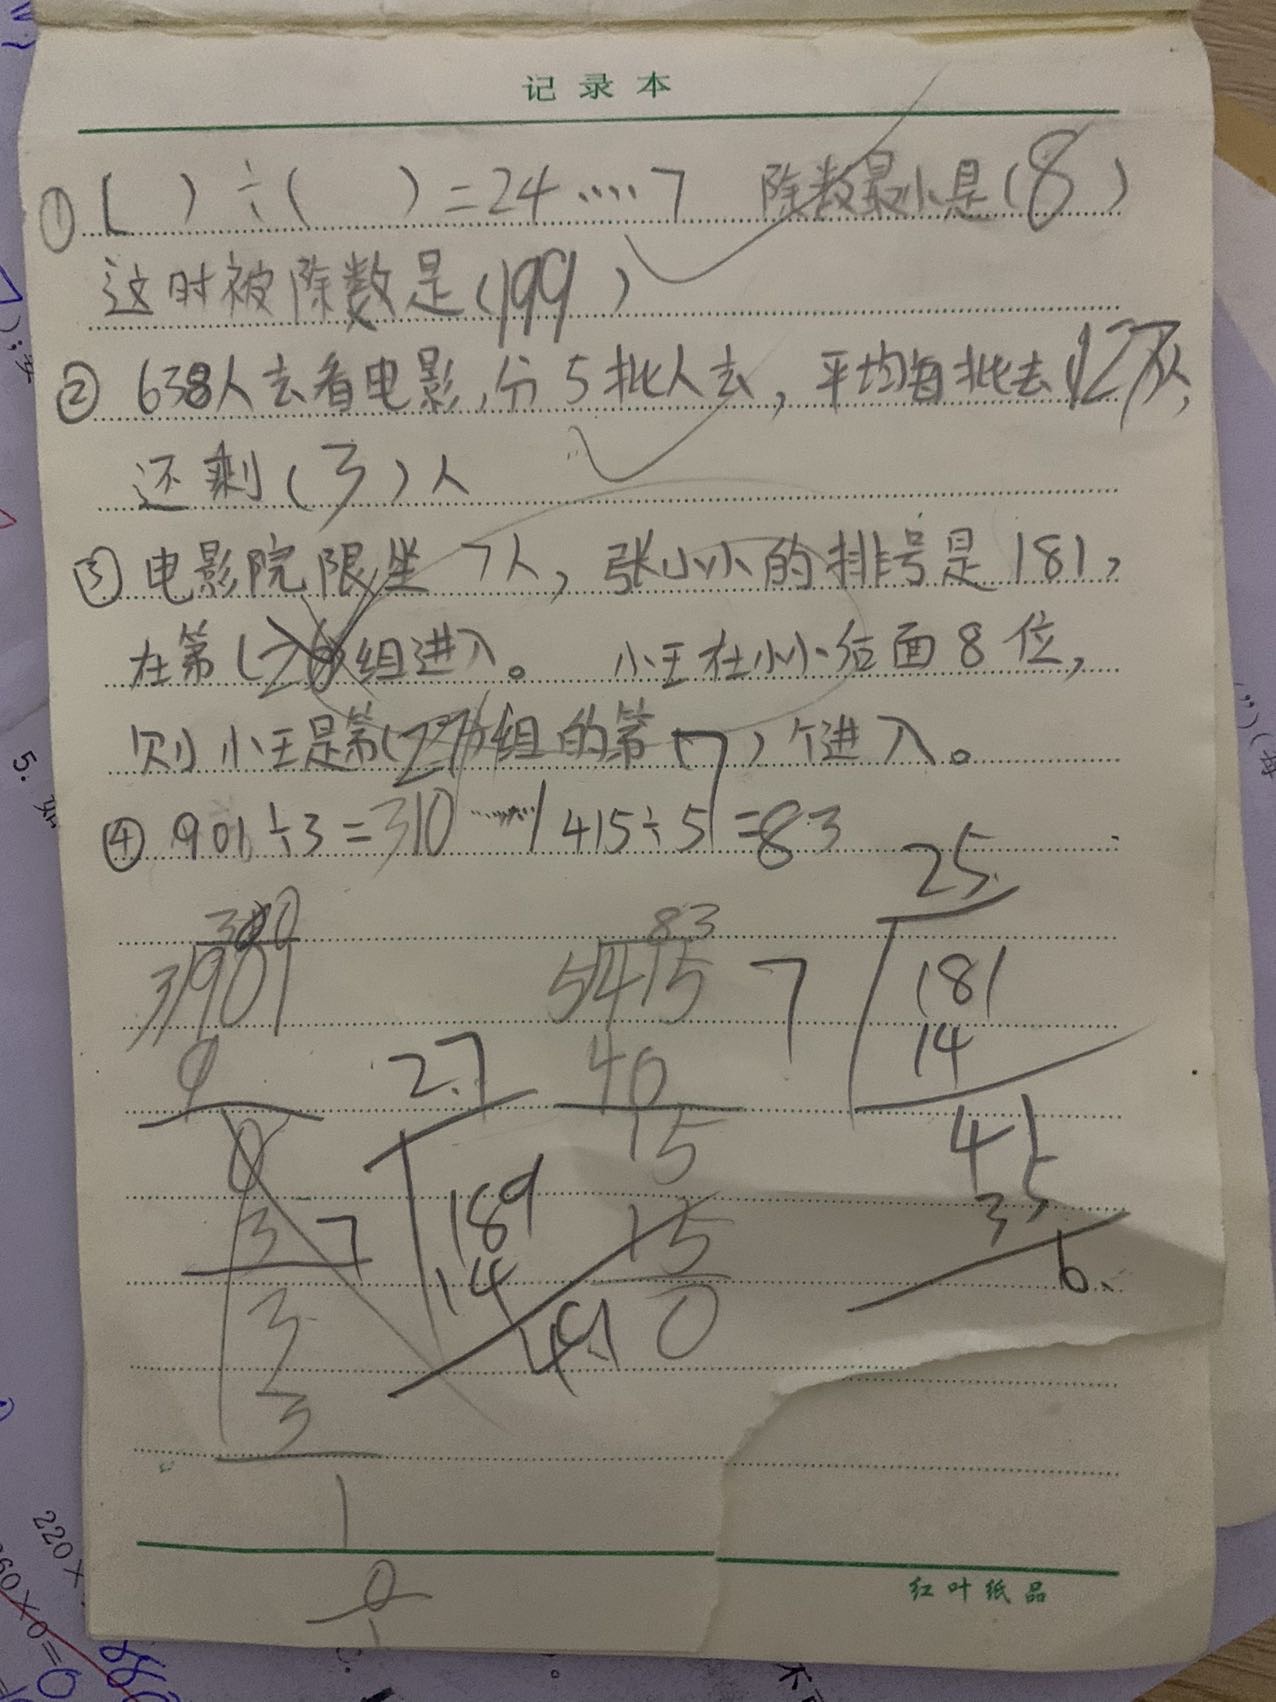 记录本
① ( ) ÷ ( ) = 24 ····· 7 除数最小是(8)
这时被除数是(199)
② 638人去看电影,分5批人去,平均每批去127人,
还剩(3)人
③ 电影院限坐7人,张小小的排号是181,
在第(26)组进入。 小王在小小后面8位,
则小王是第(27)组的第(7)个进入。
④ 901÷3=310 ······1 415÷5=83
25
83
3 901
5 415
7 181
9
40
14
27
0
15
41
3
7 189
15
35
14
0
6
3
49
3
1
0
红叶纸品
5.
220×
60×0=0